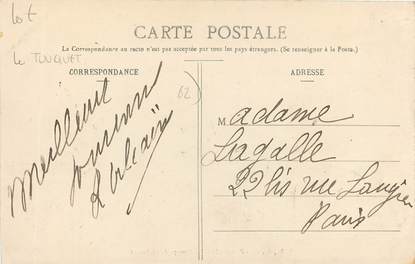 Lot
Le TOUQUET
CARTE POSTALE
La Correspondance au recto n'est pas acceptée par tous les pays étrangers. (Se renseigner à la Poste.)
CORRESPONDANCE
Meilleur
62
ADRESSE
Madame
Lagalle
22 bis rue
Paris